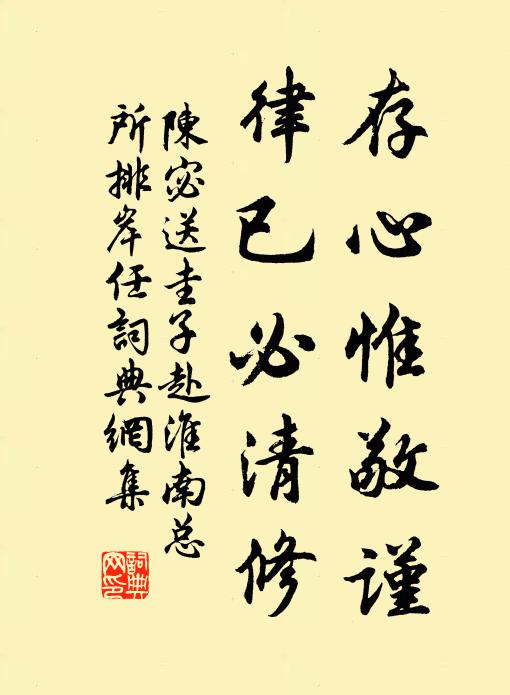 存心惟敬谨
律已必清修
陳宓送圭子赴淮南总
所排岸任詞典網集
詞典網印